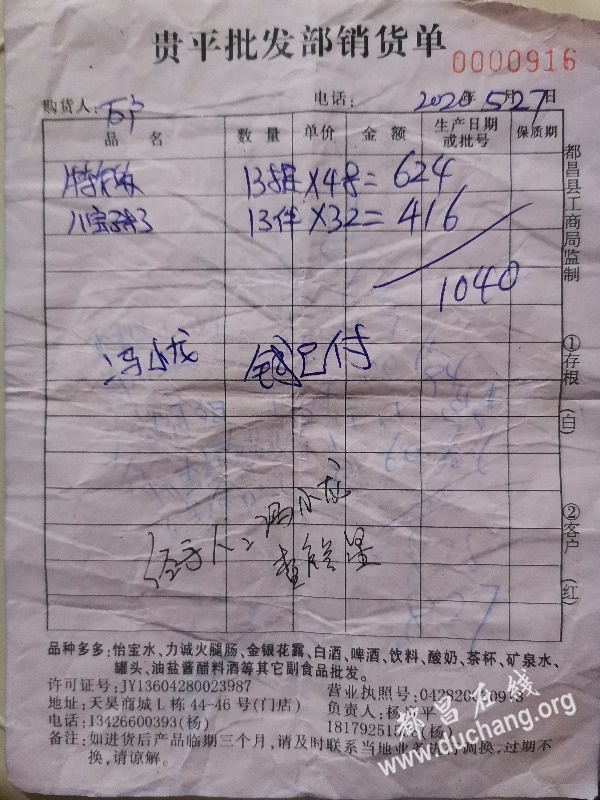 贵平批发部销货单
0000916
购货人: 电话: 2020年5月27日
品 名 数 量 单价 金 额 生产日期或批号 保质期
13提×48=624
八宝粥 13件×32=416
1040
冯小龙 钱已付
经手人:冯小龙
都昌县工商局监制 ①存根(白) ②客户(红)
品种多多:怡宝水、力诚火腿肠、金银花露、白酒、啤酒、饮料、酸奶、茶杯、矿泉水、
罐头、油盐酱醋料酒等其它副食品批发。
许可证号:JY13604280023987 营业执照号:
地址:天昊商城L栋44-46号(门店) 负责人:杨 平
电话:13426600393(杨) (杨)
备注:如进货后产品临期三个月,请及时联系当地业务 调换,过期不
换,请谅解。
都昌在线
www.duchang.org